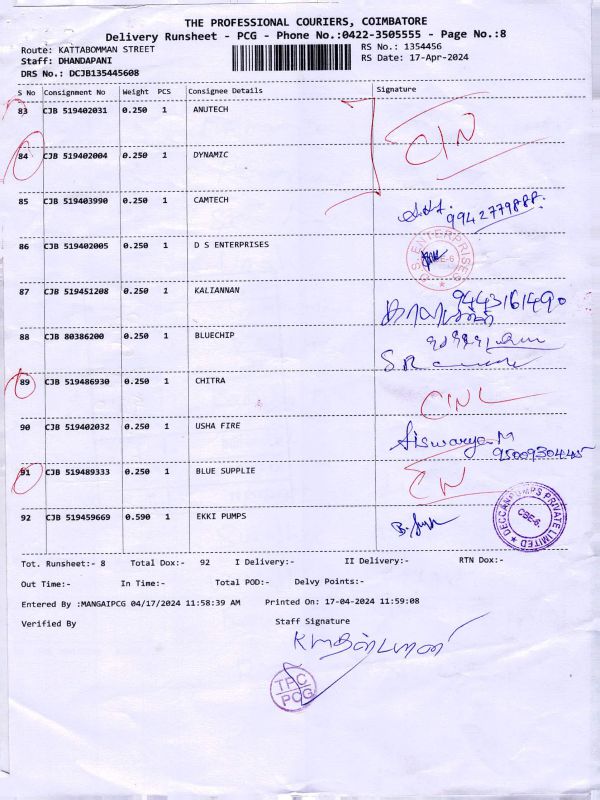 THE PROFESSIONAL COURIERS, COIMBATORE
Delivery Runsheet - PCG - Phone No.:0422-3505555 - Page No.:8
Route: KATTABOMMAN STREET RS No.: 1354456
Staff: DHANDAPANI RS Date: 17-Apr-2024
DRS No.: DCJB135445608
S No Consignment No Weight PCS Consignee Details Signature
83 CJB 519402031 0.250 1 ANUTECH
CIN
84 CJB 519402004 0.250 1 DYNAMIC
85 CJB 519403990 0.250 1 CAMTECH
9942779888.
86 CJB 519402005 0.250 1 D S ENTERPRISES
D.S. ENTERPRISES CBE-6
87 CJB 519451208 0.250 1 KALIANNAN 9443161490
88 CJB 80386200 0.250 1 BLUECHIP
S.R
89 CJB 519486930 0.250 1 CHITRA
CNL
90 CJB 519402032 0.250 1 USHA FIRE Aiswarya.M
9500930445
91 CJB 519489333 0.250 1 BLUE SUPPLIE CN
92 CJB 519459669 0.590 1 EKKI PUMPS
DECCAN PUMPS PRIVATE LIMITED CBE-6.
Tot. Runsheet:- 8 Total Dox:- 92 I Delivery:- II Delivery:- RTN Dox:-
Out Time:- In Time:- Total POD:- Delvy Points:-
Entered By :MANGAIPCG 04/17/2024 11:58:39 AM Printed On: 17-04-2024 11:59:08
Verified By Staff Signature
TPC
PCG